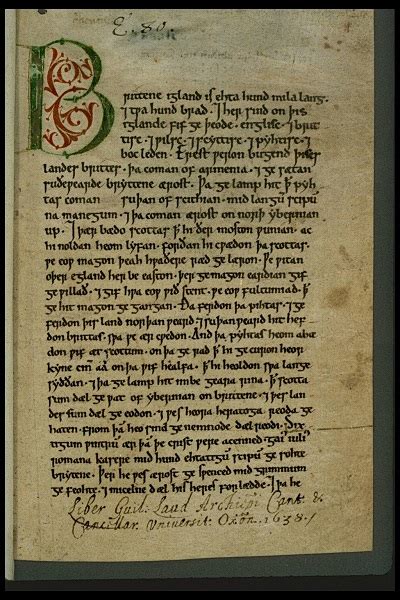 E. 80.
Brittene igland is ehta hund mila lang.
⁊ tƿa hund brad. ⁊ her sind on þis
iglande fif geþeode. englisc. ⁊ brit
tisc. ⁊ ƿilsc. ⁊ scyttisc. ⁊ pyhtisc. ⁊
boc leden. Erest ƿeron bugend þises
landes brittes. þa coman of armenia. ⁊ gesætan
suðeƿearde bryttene ærost. Þa gelamp hit þ̄ pyh
tas coman suþan of scithian. mid langū scipū
na manegum. ⁊ þa coman ærost on norþ ybernian
up. ⁊ þær bædo scottas þ̄ hi ðer moston ƿunian. ac
hi noldan heom lyfan. forðan hi cƿædon þa scottas.
ƿe eoƿ magon þeah hƿaðere ræd gelæron. Ƿe ƿitan
oþer egland her be easton. þer ge magon eardian gif
ge ƿillað. ⁊ gif hƿa eoƿ ƿið stent. ƿe eoƿ fultumiað. þ̄
ge hit magon gegangan. Ða ferdon þa pihtas. ⁊ ge
ferdon þis land norþanƿeard. ⁊ suþanƿeard hit hef
don brittas. sƿa ƿe ær cƿedon. And þa pyhtas heom abæ
don ƿif æt scottum. on þa gerad þ̄ hi gecuron heora
kyne cinn aa on þa ƿif healfa. þ̄ hi heoldon sƿa lange
syððan. ⁊ þa gelamp hit imbe geara rina. þ̄ scotta
sum dæl geƿat of ybernian on brittene. ⁊ þes lan
des sum dæl geeodon. ⁊ ƿes heora heratoga. reoda ge
haten. from þā heo sind genemnode dælreodi. Six
tigum ƿintrū ær þā þe crist ƿere acenned. gaiˀ iuliˀ
romana kasere mid hund ehtatigū scipū gesohte
brytene. Þer he ƿes ærost gesƿenced mid grimmum
gefeohte. ⁊ micelne dæl his heres forlædde. ⁊ þa he
Liber Guil: Laud Archiepi Cant. &
Cancellar. Universit: Oxōn. 1638.